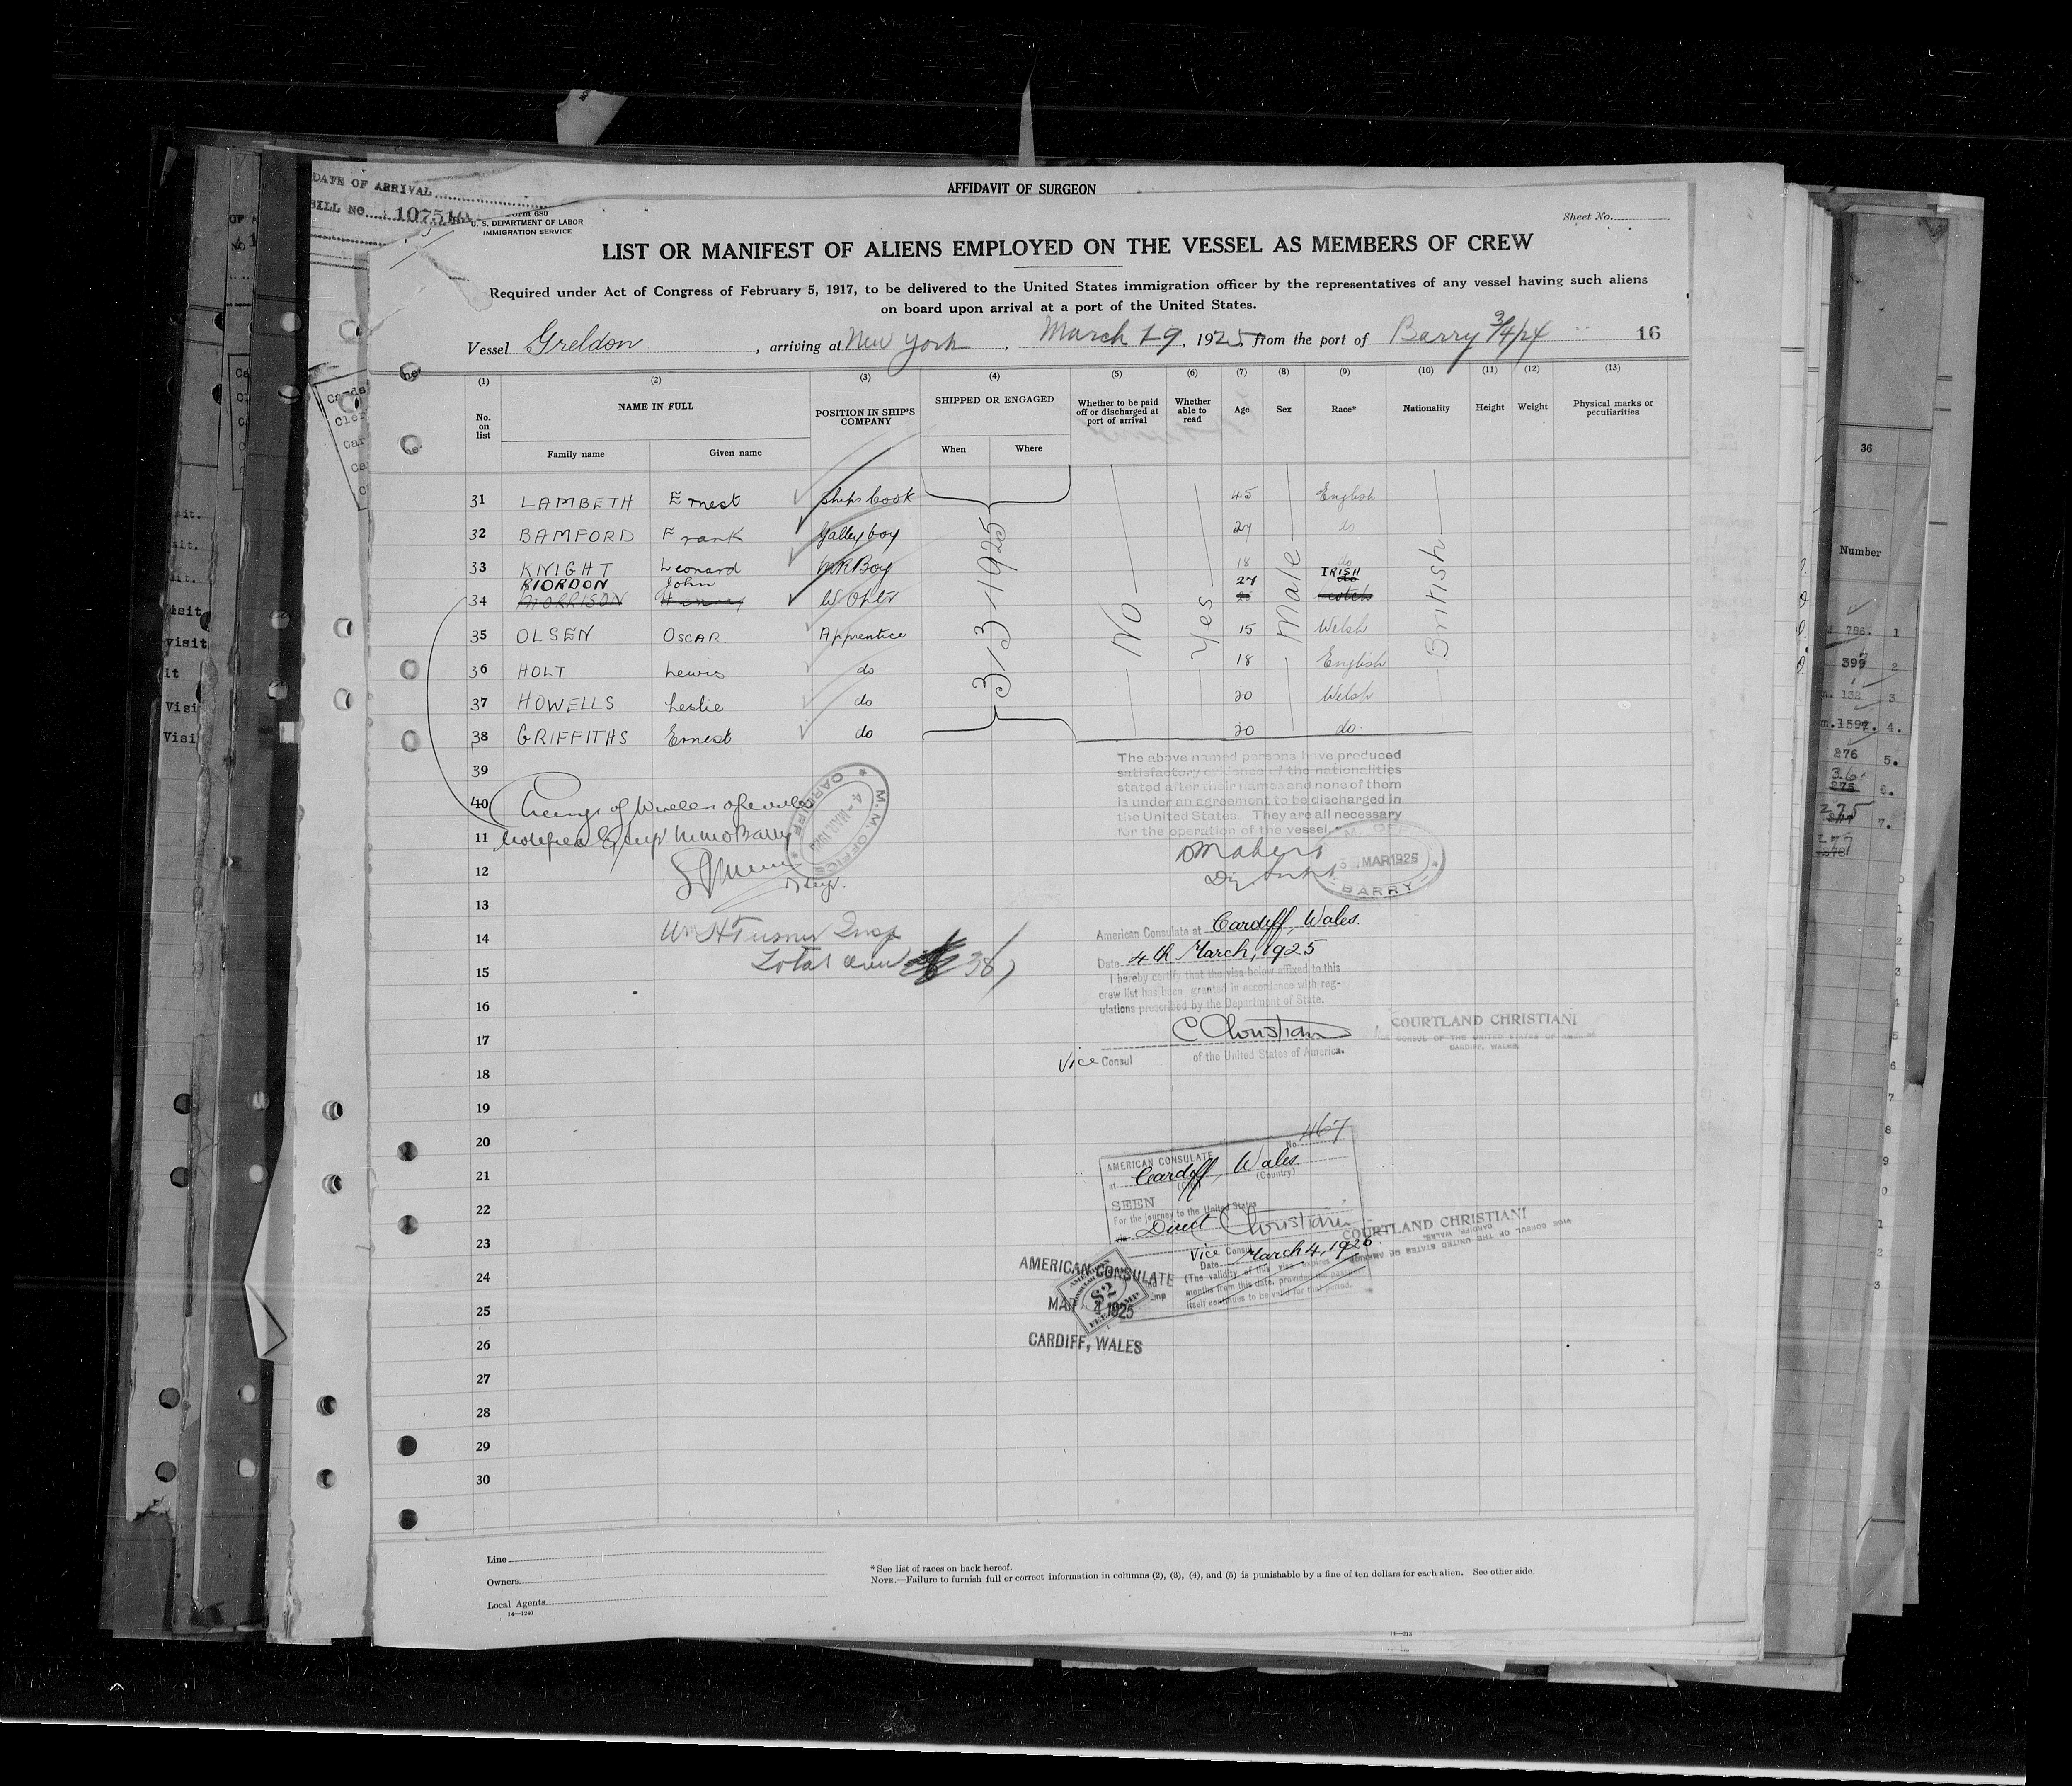 AFFIDAVIT OF SURGEON
DATE OF ARRIVAL
BILL NO. 10751
Form 680
U. S. DEPARTMENT OF LABOR
IMMIGRATION SERVICE
Sheet No.
LIST OR MANIFEST OF ALIENS EMPLOYED ON THE VESSEL AS MEMBERS OF CREW
Required under Act of Congress of February 5, 1917, to be delivered to the United States immigration officer by the representatives of any vessel having such aliens
on board upon arrival at a port of the United States.
Vessel Greldon, arriving at New York, March 19, 1925, from the port of Barry 3/4/24 16
(1) (2) (3) (4) (5) (6) (7) (8) (9) (10) (11) (12) (13)
No. on list NAME IN FULL POSITION IN SHIP'S COMPANY SHIPPED OR ENGAGED Whether to be paid off or discharged at port of arrival Whether able to read Age Sex Race* Nationality Height Weight Physical marks or peculiarities
Family name Given name When Where
31 LAMBETH Ernest Ships Cook 45 English
32 BAMFORD Frank Galley boy 27 do
33 KNIGHT Leonard M R Boy 18 do
RIORDON John 27 IRISH
34 MORRISON W Optr
35 OLSEN OSCAR Apprentice 15 Welsh
36 HOLT Lewis do 18 English
37 HOWELLS Leslie do 20 Welsh
38 GRIFFITHS Ernest do 20 do
3/3/1925 No Yes Male British
39
40 Change of Wireless
11 Notified Barry
12
13
14 Wm H Turner Insp
15 Total crew 38
16
17
18
19
20
21
22
23
24
25
26
27
28
29
30
M. M. OFFICE
CARDIFF
The above named persons have produced
satisfactory evidence of the nationalities
stated after their names and none of them
is under an agreement to be discharged in
the United States. They are all necessary
for the operation of the vessel.
MAR 1925
BARRY
American Consulate at Cardiff, Wales.
Date 4th March, 1925
I hereby certify that the visa below affixed to this
crew list has been granted in accordance with reg-
ulations prescribed by the Department of State.
C Christiani
Vice Consul of the United States of America.
COURTLAND CHRISTIANI
VICE CONSUL OF THE UNITED STATES OF AMERICA
CARDIFF, WALES.
No. 467
AMERICAN CONSULATE
at Cardiff, Wales
(City) (Country)
SEEN
For the journey to the United States
via Direct Christiani
Vice Consul
Date March 4, 1925
(The validity of this visa expires
months from this date, provided the passport
itself continues to be valid for that period.
COURTLAND CHRISTIANI
VICE CONSUL OF THE UNITED STATES OF AMERICA
CARDIFF, WALES.
AMERICAN CONSULATE
MAR 4 1925
CARDIFF, WALES
$2
FEE STAMP
Line
Owners
Local Agents
14—1240
*See list of races on back hereof.
NOTE.—Failure to furnish full or correct information in columns (2), (3), (4), and (5) is punishable by a fine of ten dollars for each alien. See other side.
36
Number
786. 1
399 2
132 3
m.1597. 4.
276 5.
6.
275
7.
277